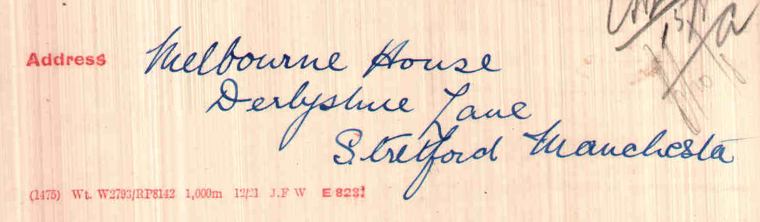 Address Melbourne House
Derbyshire Lane
Stretford Manchester
(1475) Wt. W2793/RP8142 1,000m 12/21 J.F W E 8231